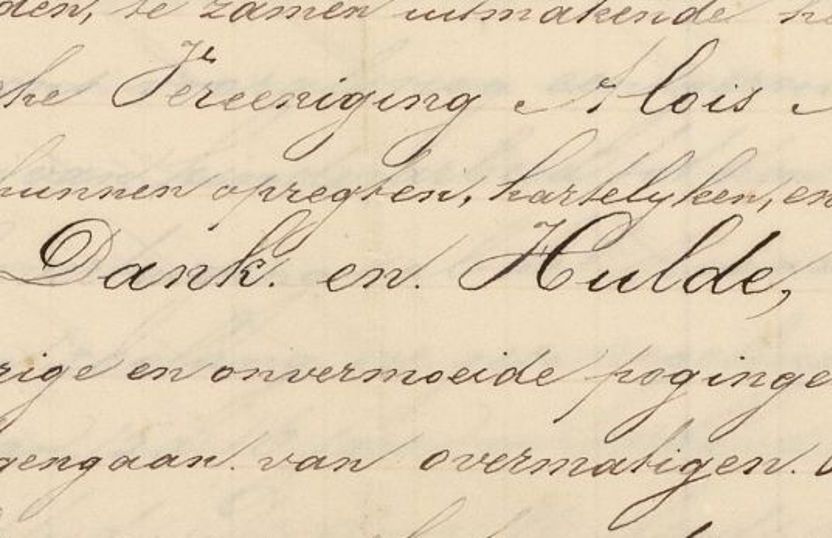 den, te zamen uitmakende
ke Vereeniging Alois
hunnen opregten, hartelyken, en
Dank. en. Hulde,
rige en onvermoeide poginge
gengaan. van overmatigen.